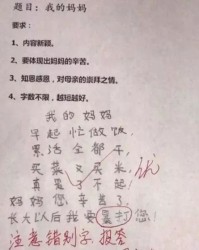 题目：我的妈妈
要求：
1、内容新颖。
2、要体现出妈妈的辛苦。
3、知恩感恩，对母亲的崇拜之情。
4、字数不限，越短越好。
我的妈妈
早起忙做饭，
累活全都干，
买菜又买米，
真是了不起！
妈妈您辛苦了！
长大以后我要暴打您！
优
注意错别字 报答